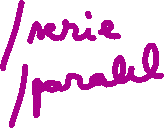 /serie
/paralel